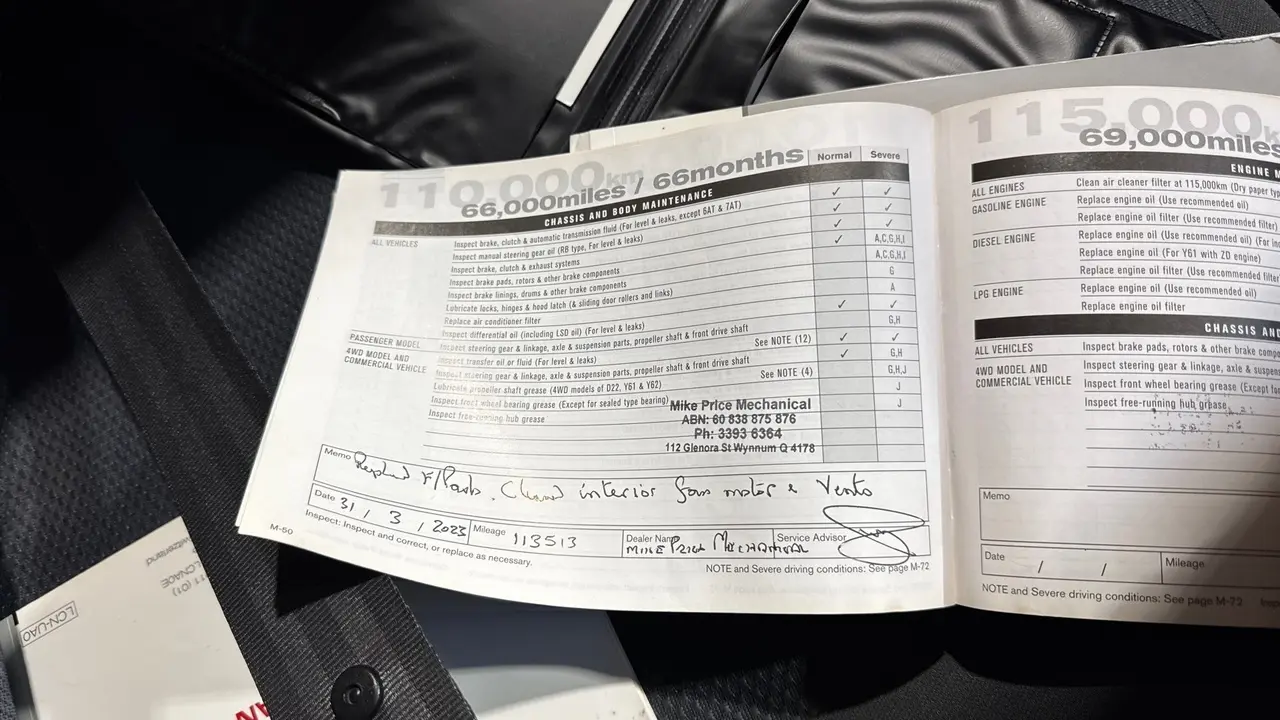 110,000km
66,000miles / 66months
Normal Severe
CHASSIS AND BODY MAINTENANCE
ALL VEHICLES
Inspect brake, clutch & automatic transmission fluid (For level & leaks, except 6AT & 7AT) ✓ ✓
Inspect manual steering gear oil (RB type, For level & leaks) ✓ ✓
Inspect brake, clutch & exhaust systems ✓ ✓
Inspect brake pads, rotors & other brake components ✓ A,C,G,H,I
Inspect brake linings, drums & other brake components A,C,G,H,I
Lubricate locks, hinges & hood latch (& sliding door rollers and links) G
Replace air conditioner filter A
Inspect differential oil (including LSD oil) (For level & leaks) ✓ ✓
PASSENGER MODEL
Inspect steering gear & linkage, axle & suspension parts, propeller shaft & front drive shaft G,H
4WD MODEL AND
COMMERCIAL VEHICLE
Inspect transfer oil or fluid (For level & leaks) See NOTE (12) ✓ ✓
Inspect steering gear & linkage, axle & suspension parts, propeller shaft & front drive shaft ✓ G,H
Lubricate propeller shaft grease (4WD models of D22, Y61 & Y62) See NOTE (4) G,H,J
Inspect front wheel bearing grease (Except for sealed type bearing) J
Inspect free-running hub grease J
Mike Price Mechanical
ABN: 60 838 875 876
Ph: 3393 6364
112 Glenora St Wynnum Q 4178
Memo Replaced F/Pads. Cleaned interior fan motor & Vents
Date 31 / 3 / 2023 Mileage 113513 Dealer Name MIKE PRICE MECHANICAL Service Advisor
Inspect: Inspect and correct, or replace as necessary.
M-50
NOTE and Severe driving conditions: See page M-72
115,000k
69,000miles
ENGINE M
ALL ENGINES Clean air cleaner filter at 115,000km (Dry paper typ
GASOLINE ENGINE Replace engine oil (Use recommended oil)
Replace engine oil filter (Use recommended filter)
DIESEL ENGINE Replace engine oil (Use recommended oil) (For
Replace engine oil (For Y61 with ZD engine)
Replace engine oil filter (Use recommended filter
LPG ENGINE Replace engine oil (Use recommended oil)
Replace engine oil filter
CHASSIS AN
ALL VEHICLES Inspect brake pads, rotors & other brake compo
4WD MODEL AND
COMMERCIAL VEHICLE
Inspect steering gear & linkage, axle & suspen
Inspect front wheel bearing grease (Except for
Inspect free-running hub grease
Memo
Date / / Mileage
NOTE and Severe driving conditions: See page M-72
LCN-UA0